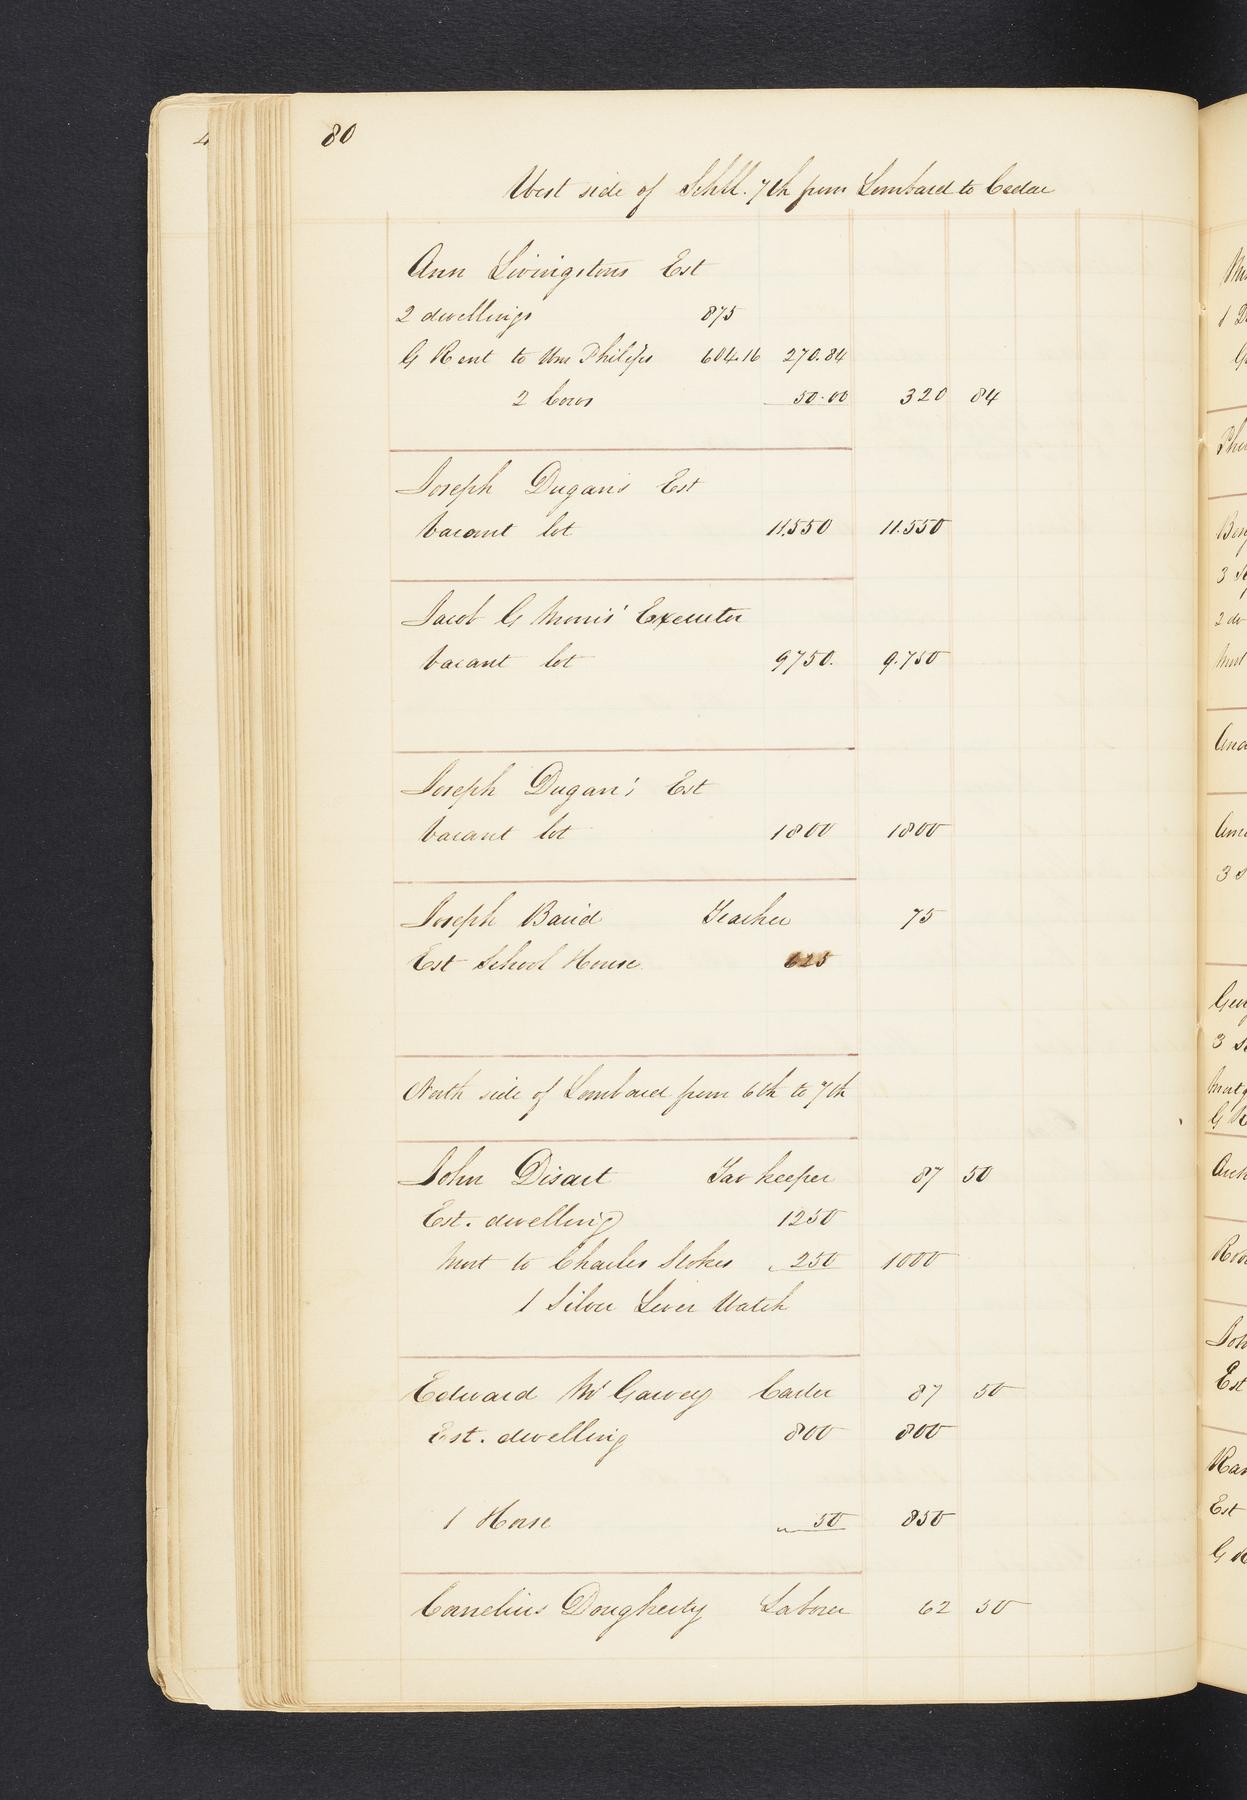 80
West side of Schll. 7th from Lombard to Cedar
Ann Livingstons Est
2 dwellings 875
G Rent to Wm Philips 604.16 270.84
2 Cows 50.00 320 84
Joseph Dugans Est
Vacant lot 11.550 11.550
Jacob G Morris' Executor
Vacant lot 9750. 9.750
Joseph Dugan's Est
Vacant lot 1800 1800
Joseph Baird Teacher 75
Est School House 625
North side of Lombard from 6th to 7th
John Disart Tav keeper 87 50
Est. dwelling 1250
Mort to Charles Stokes 250 1000
1 Silver Lever Watch
Edward Mc Garvey Carter 87 50
Est. dwelling 800 800
1 Horse 50 850
Cornelius Dougherty Laborer 62 50